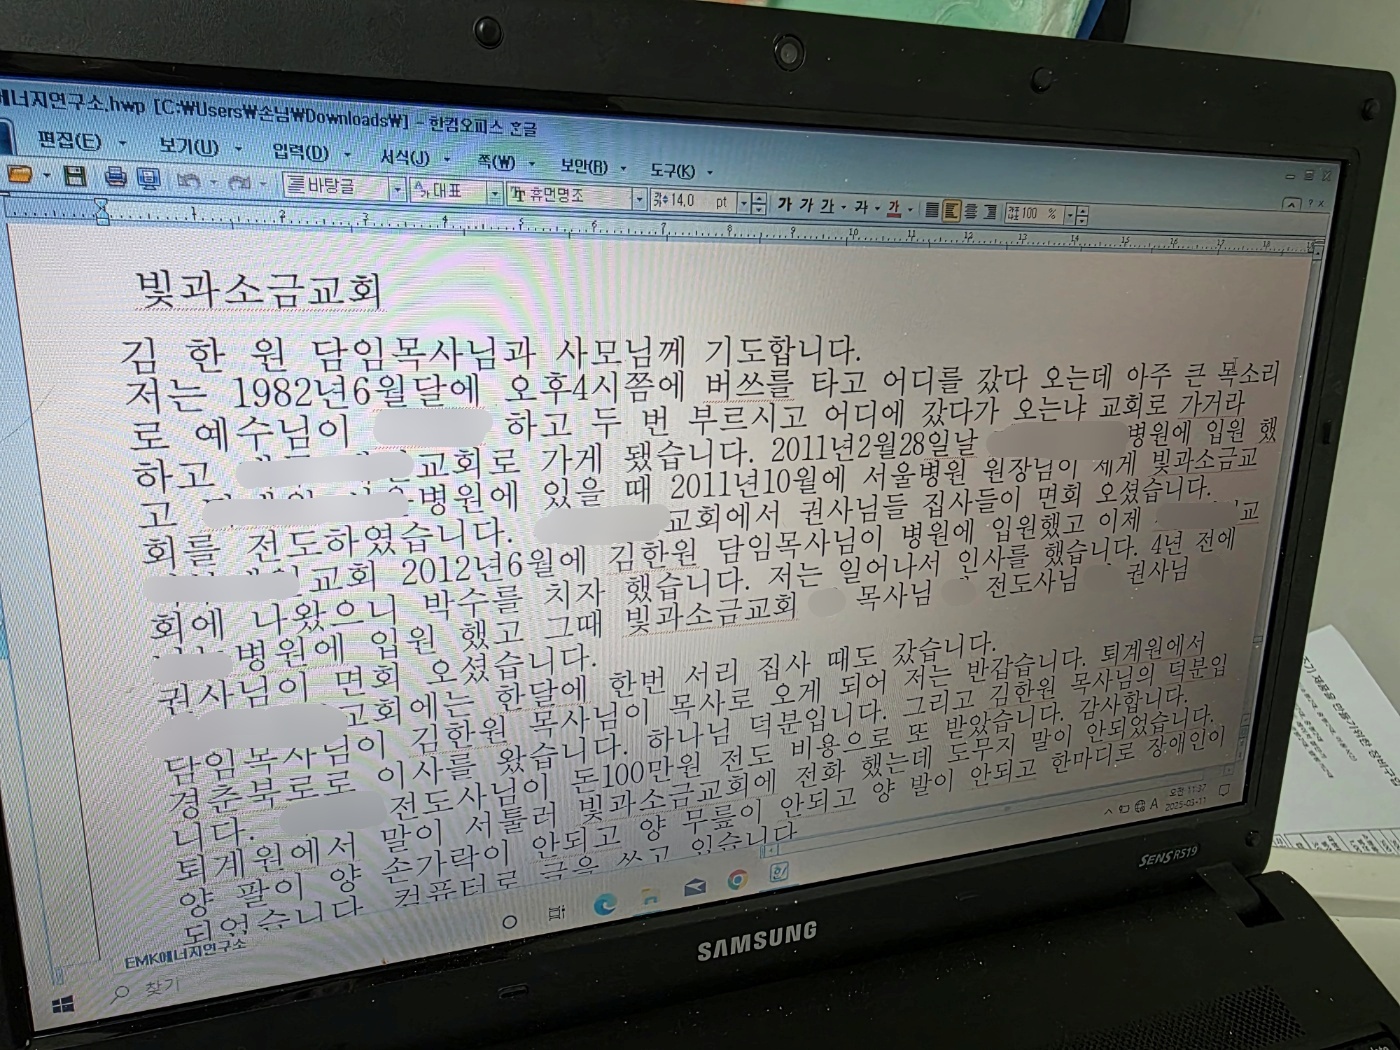 에너지연구소.hwp [C:₩Users₩손님₩Downloads₩] - 한컴오피스 한글
편집(E) 보기(U) 입력(D) 서식(J) 쪽(W) 보안(R) 도구(K)
바탕글 대표 휴먼명조 14.0 pt 가 가 가 가 가 100 %
1 2 3 4 5 6 7 8 9 10 11 12 13 14 15 16 17 18
빛과소금교회
김 한 원 담임목사님과 사모님께 기도합니다.
저는 1982년6월달에 오후4시쯤에 버쓰를 타고 어디를 갔다 오는데 아주 큰 목소리
로 예수님이 하고 두 번 부르시고 어디에 갔다가 오는냐 교회로 가거라
하고 교회로 가게 됐습니다. 2011년2월28일날 병원에 입원 했
고 병원에 있을 때 2011년10월에 서울병원 원장님이 제게 빛과소금교
회를 전도하였습니다. 교회에서 권사님들 집사들이 면회 오셨습니다.
교회 2012년6월에 김한원 담임목사님이 병원에 입원했고 이제 교
회에 나왔으니 박수를 치자 했습니다. 저는 일어나서 인사를 했습니다. 4년 전에
병원에 입원 했고 그때 빛과소금교회 목사님 전도사님 권사님
권사님이 면회 오셨습니다.
교회에는 한달에 한번 서리 집사 때도 갔습니다.
담임목사님이 김한원 목사님이 목사로 오게 되어 저는 반갑습니다. 퇴계원에서
경춘북로로 이사를 왔습니다. 하나님 덕분입니다. 그리고 김한원 목사님의 덕분입
니다. 전도사님이 돈100만원 전도 비용으로 또 받았습니다. 감사합니다.
퇴계원에서 말이 서툴러 빛과소금교회에 전화 했는데 도무지 말이 안되었습니다.
양 팔이 양 손가락이 안되고 양 무릎이 안되고 양 발이 안되고 한마디로 장애인이
되었습니다 컴퓨터로 글을 쓰고 있습니다
EMK에너지연구소
찾기
A 오전 11:37
2025-03-11
SENS R519
SAMSUNG